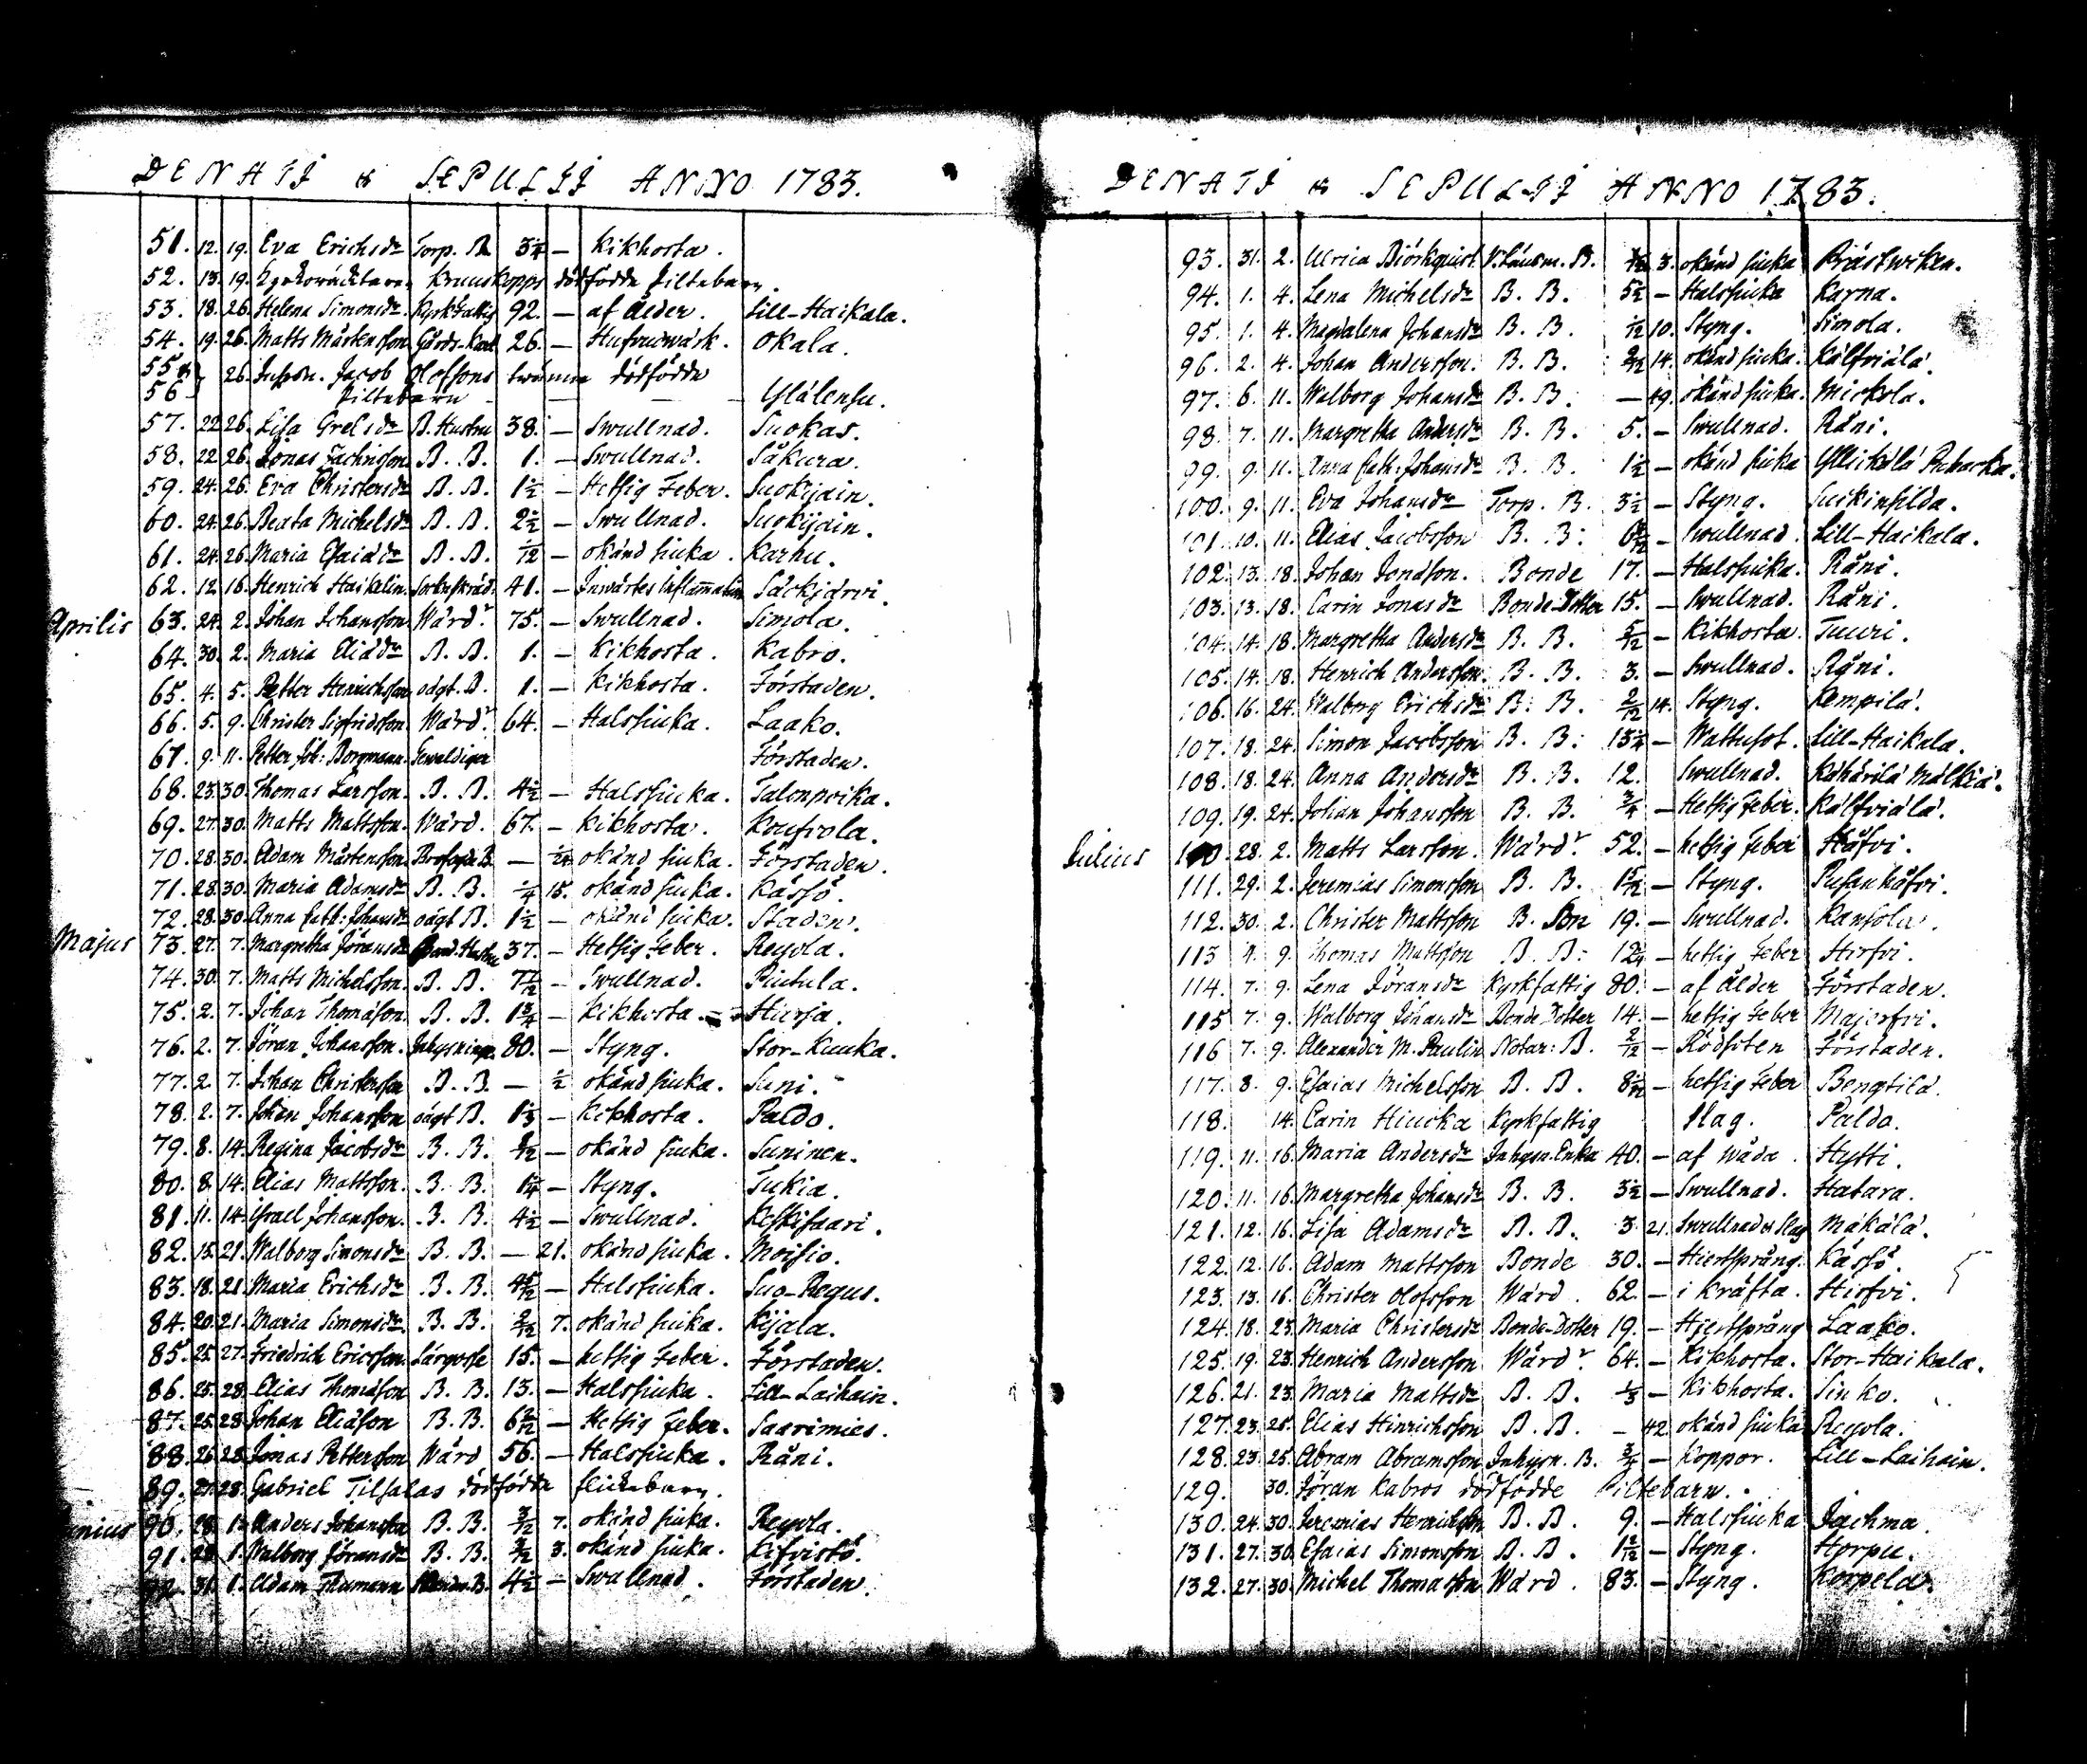 DENATI & SEPULTI ANNO 1783.
51. 12. 19. Eva Erichsdr Torp. B. 3 1/4 — Kikhosta.
52. 13. 19. Kruuskopps dödfödde Piltebarn.
53. 18. 26. Helena Simonsdr. Kyrkfattig 92. — af Ålder. Lill-Haikala.
54. 19. 26. Matts Mårtensson Gårds-Karl 26. — Hufvudwärk. Okala.
55 & 26. Jacob Olofsons twänne dödfödde
56 Piltebarn — — — Ylälensu.
57. 22 26. Lisa Grelsdr B. Hustru 38. — Swullnad. Suokas.
58. 22 26. Jonas B. B. 1. — Swullnad. Säkura.
59. 24. 26. Eva Christersdr B. B. 1 1/2 — Hetsig Feber. Suokijain.
60. 24. 26. Beata Michelsdr B. B. 2 1/2 — Swullnad. Suokijain.
61. 24. 26. Maria Esaiædr B. B. 1/12 — okänd siuka. Karhu.
62. 12. 16. Henrich Haikelin. 41. — Inwärtes Inflammation Säckjärvi.
Aprilis 63. 24. 2. Johan Johansson. Wärdr 75. — Swullnad. Simola.
64. 30. 2. Maria Eliædr B. B. 1. — Kikhosta. Kabro.
65. 4. 5. Petter Henrichsson oägt. B. 1. — Kikhosta. Förstaden.
66. 5. 9. Christer Sigfridsson. Wärdr 64. — Halssiuka. Laako.
67. 9. 11. Petter Joh: Borgmann. Gewaldiger Förstaden.
68. 23. 30. Thomas Larsson. B. B. 4 1/2 — Halssiuka. Talonpoika.
69. 27. 30. Matts Mattsson. Wärd. 67. — Kikhosta. Koufvola.
70. 28. 30. Adam Mårtensson — 1/24 okänd siuka. Förstaden.
71. 28. 30. Maria Adamsdr B. B. 1/4 15. okänd siuka. Kässö.
72. 28. 30. Anna Cath: Johansdr oägt B. 1 1/2 — okänd siuka. Staden.
Majus 73. 27. 7. Margretha Jöransdr Bond. Hustru 37. — Hetsig Feber. Reyola.
74. 30. 7. Matts Michelsson. B. B. 7 1/12 — Swullnad. Piutula.
75. 2. 7. Johan Thomæson. B. B. 1 3/4 — Kikhosta. — Hiursa.
76. 2. 7. Jöran Johansson. Inhysning. 80. — Styng. Stor-Kuuka.
77. 2. 7. Johan Christersson B. B. — 1/2 okänd siuka. Suni.
78. 2. 7. Johan Johansson oägt B. 1 1/3 — Kikhosta. Paldo.
79. 8. 14. Regina Jacobsdr B. B. 2/12 — okänd siuka. Suninen.
80. 8. 14. Elias Mattsson. B. B. 1 1/4 — Styng. Tukia.
81. 11. 14. Israel Johansson. B. B. 4 1/2 — Swullnad. Keskisaari.
82. 15. 21. Walborg Simonsdr B. B. — 21. okänd siuka. Moisio.
83. 18. 21. Maria Erichsdr. B. B. 4 5/12 — Halssiuka. Suo-Regus.
84. 20. 21. Maria Simonsdr. B. B. 2/12 7. okänd siuka. Kijala.
85. 25. 27. Friedrich Ericsson. Lärgosse 15. — hetsig Feber. Förstaden.
86. 25. 28. Elias Thomæson B. B. 13. — Halssiuka. Lill-Laihain.
87. 25. 28. Johan Eliæson B. B. 6 2/12 — Hetsig Feber. Saarimies.
88. 26. 28. Jonas Pettersson Wärd 56. — Halssiuka. Räni.
89. 27. 28. Gabriel Tilsalas dödfödde flickebarn.
Junius 90. 28. 1. Anders Johansson B. B. 3/12 7. okänd siuka. Reyola.
91. 28. 1. Walborg Jöransdr B. B. 2/12 3. okänd siuka. Kifvistö.
92. 31. 1. Adam Thumann B. 4 1/2 — Swullnad. Förstaden.
DENATI & SEPULTI ANNO 1783.
93. 31. 2. Ulrica Biörkquist. V. Länsm. B. 3. okänd siuka Prästwiken.
94. 1. 4. Lena Michelsdr B. B. 5 1/2 — Halssiuka Karna.
95. 1. 4. Magdalena Johansdr B. B. 1/12 10. Styng. Simola.
96. 2. 4. Johan Andersson. B. B. 2/12 14. okänd siuka. Kälfviälä.
97. 6. 11. Walborg Johansdr B. B. — 19. okänd siuka. Mickola.
98. 7. 11. Margretha Andersdr B. B. 5. — Swullnad. Räni.
99. 9. 11. Anna Cath: Johansdr B. B. 1 1/2 — okänd siuka Yllickälä Puharka.
100. 9. 11. Eva Johansdr Torp. B. 3 1/2 — Styng. Suikinsilda.
101. 10. 11. Elias Jacobsson B. B. 6 — Swullnad. Lill-Haikala.
102. 13. 18. Johan Jonæson. Bonde 17. — Halssiuka. Räni.
103. 13. 18. Carin Jonasdr Bonde-Dotter 15. — Swullnad. Räni.
104. 14. 18. Margretha Andersdr B. B. 5/12 — Kikhosta. Tuuri.
105. 14. 18. Henrich Andersson. B. B. 3. — Swullnad. Räni.
106. 16. 24. Walborg Erichsdr B. B. 2/12 14. Styng. Kempilä.
107. 18. 24. Simon Jacobsson B. B. 13 1/4 — Wattusot. Lill-Haikala.
108. 18. 24. Anna Andersdr B. B. 12. Swullnad. Kähärilä Mälkiä.
109. 19. 24. Johan Johansson B. B. 3/4 — Hetsig Feber. Kälfviälä.
Julius 110. 28. 2. Matts Larsson. Wärdr. 52. — hetsig Feber Häfvi.
111. 29. 2. Jeremias Simonsson B. B. 1 5/12 — Styng. Pusan Häfvi.
112. 30. 2. Christer Mattsson B. Son 19. — Swullnad. Kansola.
113 4. 9. Thomas Mattsson B. B. 12 — hetsig Feber Hirfvi.
114. 7. 9. Lena Jöransdr Kyrkfattig 80. — af Ålder Förstaden.
115 7. 9. Walborg Johansdr Bonde Dotter 14. — hetsig Feber Majerfvi.
116 7. 9. Alexander M. Paulin Notar: B. 2/12 — Rödsoten Förstaden.
117. 8. 9. Esaias Michelsson B. B. 8 1/12 — hetsig Feber Bengtilä.
118. 14. Carin Hiucka Kyrkfattig Slag. Paldo.
119. 11. 16. Maria Andersdr Inhysn. Enka 40. — af wåda. Hytti.
120. 11. 16. Margretha Johansdr B. B. 3 1/2 — Swullnad. Hatara.
121. 12. 16. Lisa Adamsdr B. B. 3 21. Swullnad & Slag Mäkälä.
122. 12. 16. Adam Mattsson Bonde 30. — Hiertsprång. Kässö.
123. 13. 16. Christer Olofsson Wärd. 62. — i kräfta. Hirfvi.
124. 18. 23. Maria Christersdr Bonde-Dotter 19. — Hiertsprång Laako.
125. 19. 23. Henrich Andersson Wärdr. 64. — Kikhosta. Stor-Haikala.
126. 21. 23. Maria Mattsdr B. B. 1/3 — Kikhosta. Sinko.
127. 23. 25. Elias Hinrichsson B. B. — 42 okänd siuka Reyola.
128. 23. 25. Abram Abramsson Inhysn. B. 3/4 — Koppor. Lill-Laihain.
129. 30. Jöran Kabros dödfödde Piltebarn.
130. 24. 30. Jeremias Henrichsson B. B. 9. — Halssiuka Jachma.
131. 27. 30. Esaias Simonsson B. B. 1 2/12 — Styng. Horpu.
132. 27. 30 Michel Thomasson Wärd. 83. — Styng. Korpela.